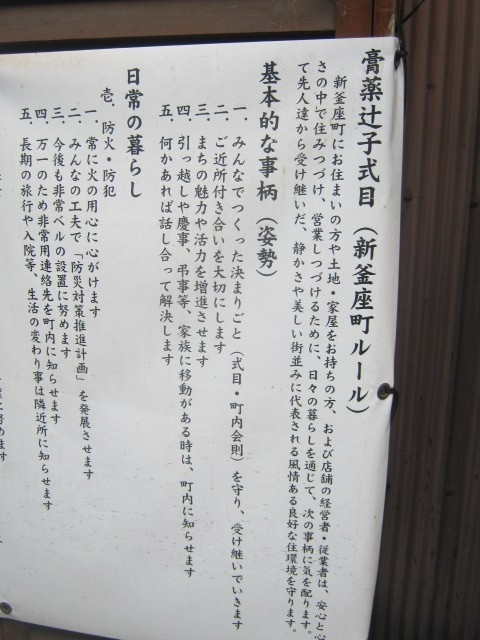 膏薬辻子式目（新釜座町ルール）
新釜座町にお住まいの方や土地・家屋をお持ちの方、および店舗の経営者・従業者は、安心と心
さの中で住みつづけ、営業しつづけるために、日々の暮らしを通じて、次の事柄に気を配ります。
て先人達から受け継いだ、静かさや美しい街並みに代表される風情ある良好な住環境を守ります。
基本的な事柄（姿勢）
一．みんなでつくった決まりごと（式目・町内会則）を守り、受け継いでいきます
二．ご近所付き合いを大切にします
三．まちの魅力や活力を増進させます
四．引っ越しや慶事、弔事等、家族に移動がある時は、町内に知らせます
五．何かあれば話し合って解決します
日常の暮らし
壱．防火・防犯
一．常に火の用心に心がけます
二．みんなの工夫で「防災対策推進計画」を発展させます
三．今後も非常ベルの設置に努めます
四．万一のため非常用連絡先を町内に知らせます
五．長期の旅行や入院等、生活の変わり事は隣近所に知らせます